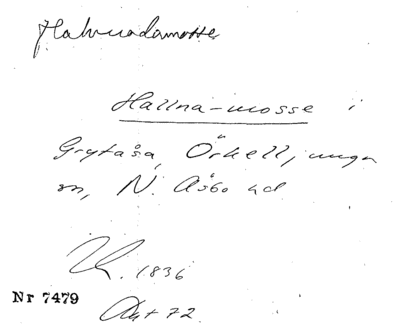 Halnadamosse
Hallna-mosse i
Grytåsa, Örkell, unga
sn, N. Åsbo hd
1836
Nr 7479
Akt 72